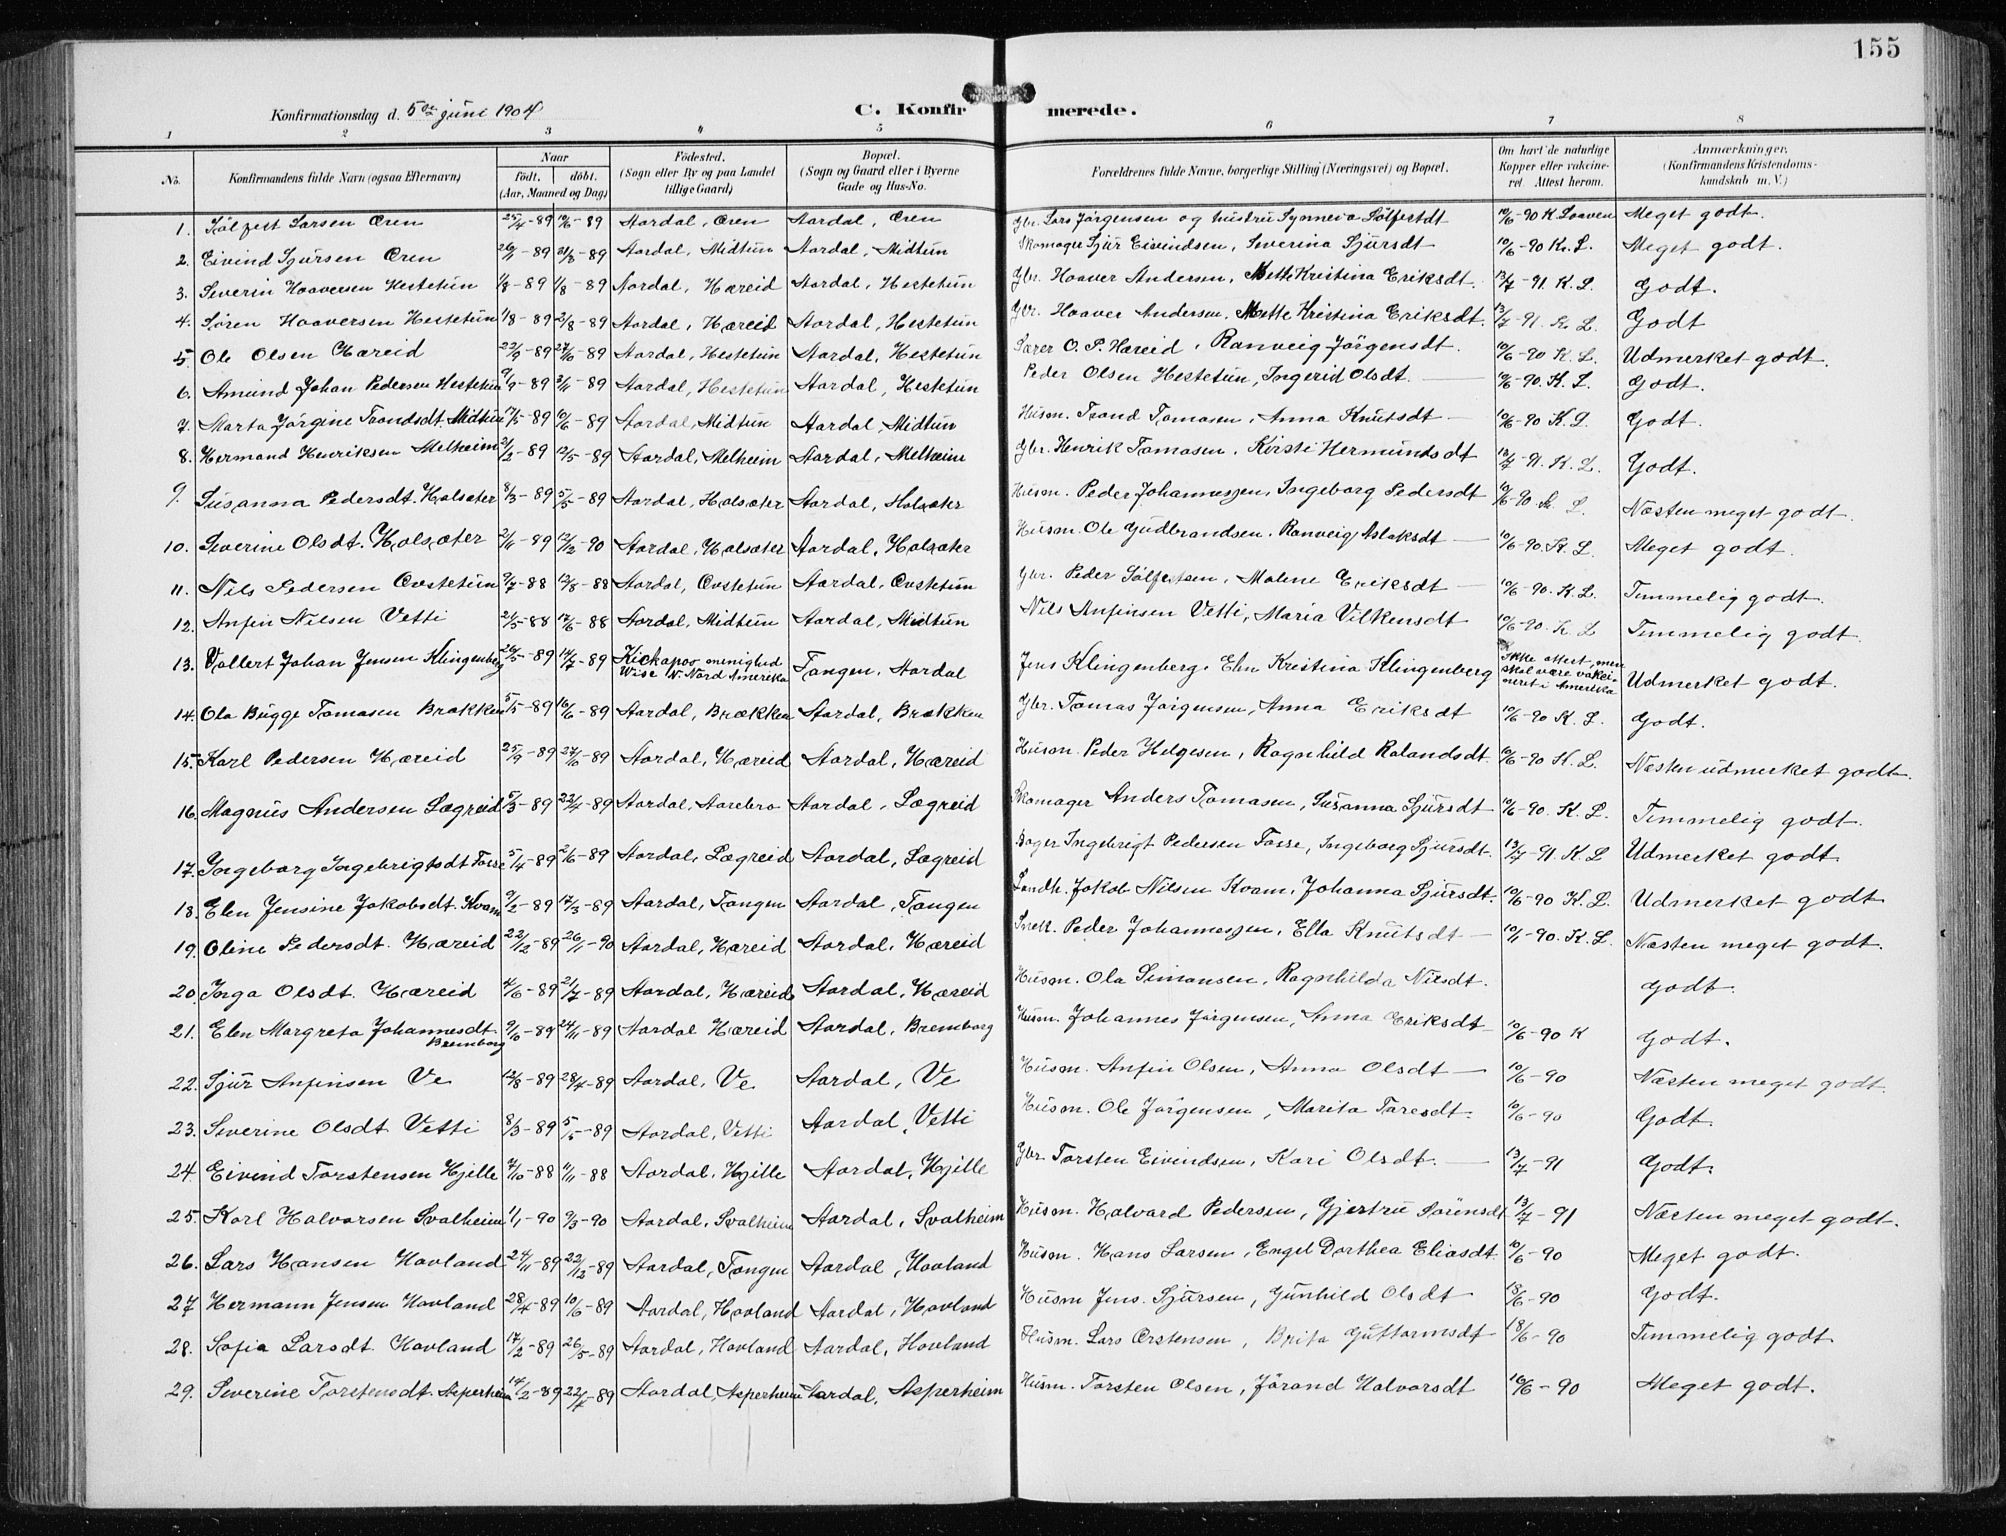 155
Konfirmationsdag d. 5te juni 1904
C. Konfirmerede.
1 2 3 4 5 6 7 8
No. Konfirmandens fulde Navn (ogsaa Efternavn) Naar født. døbt. (Aar, Maaned og Dag) Fødested. (Sogn eller By og paa Landet tillige Gaard) Bopæl. (Sogn og Gaard eller i Byerne Gade og Hus-No. Forældrenes fulde Navne, borgerlige Stilling (Næringsvei) og Bopæl. Om havt de naturlige Kopper eller vakcineret. Attest herom. Anmærkninger. (Konfirmandens Kristendomskundskab m. V.)
1. Sølfest Larsen Øren 25/4-89 10/6-89 Aardal, Øren Aardal, Øren Gbr. Lars Jörgensen og hustru Synneva Sølfestdt 10/6-90 K. Laaven Meget godt.
2. Eivind Sjursen Øren 26/1-89 21/3-89 Aardal, Midtun Aardal, Midtun Skomager Sjur Eivindsen, Severina Sjursdt 10/6-90 K. L. Meget godt.
3. Severin Haaversen Hestetun 1/8-89 1/8-89 Aardal, Hæreid Aardal, Hestetun Gbr. Haaver Andersen, Mette Kristina Eriksdt. 13/7-91. K. L. Godt.
4. Søren Haaversen Hestetun 1/8-89 2/8-89 Aardal, Hæreid Aardal, Hestetun Gbr. Haaver Andersen, Mette Kristina Eriksdt. 13/7-91. K. L. Godt
5. Ole Olsen Hæreid 22/9-89 27/10-89 Aardal, Hestetun Aardal, Hestetun Lærer O. P. Hæreid, Ranveig Jörgensdt. 10/6-90 K. L. Udmerket godt.
6. Amund Johan Pedersen Hestetun 9/9-89 3/11-89 Aardal, Hestetun Aardal, Hestetun Peder Olsen Hestetun, Ingerid Olsdt. 10/6-90. K. L. Godt.
7. Marta Jörgine Trondsdt. Midtun 17/5-89 10/6-89 Aardal, Midtun Aardal, Midtun Husm. Trond Tomasen, Anna Knutsdt 10/6-90 K. L. Godt.
8. Hermand Henriksen Melheim 21/2-89 12/5-89 Aardal, Melheim Aardal, Melheim Gbr. Henrik Tomasen, Kirsti Hermundsdt 13/7-91. K. L. Godt.
9. Susanna Pedersdt. Holsæter 8/3-89 5/5-89 Aardal, Holsæter Aardal, Holsæter Husm. Peder Johannessen, Ingeborg Pedersdt 10/6-90 K. L. Næsten meget godt.
10. Severine Olsdt. Holsæter 2/11-89 12/12-90 Aardal, Holsæter Aardal, Holsæter Husm. Ole Gudbrandsen, Ranveig Aslaksdt 10/6-90. K. L. Meget godt.
11. Nils Pedersen Ovstetun 9/7-88 12/8-88 Aardal, Ovstetun Aardal, Ovstetun Gbr. Peder Sølfestsen, Malene Eriksdt 10/6-90. K. L. Timmelig godt.
12. Anfin Nilsen Vetti 21/5-88 17/6-88 Aardal, Midtun Aardal, Midtun Nils Anfinsen Vetti, Maria Vilkensdt 10/6-90. K. L Timmelig godt.
13. Vollert Johan Jensen Klingenberg 26/5-89 14/7-89 Kickapoo menighed Wisc N. Nord Amerika Tangen, Aardal Jens Klingenberg, Elen Kristina Klingenberg Ikke attest, men skal være vakcineret i Amerika Udmerket godt.
14. Ola Bugge Tomasen Brækken 5/5-89 16/6-89 Aardal, Brækken Aardal, Brækken Gbr. Tomas Jørgensen, Anna Eriksdt 10/6-90 K. L. Godt.
15. Karl Pedersen Hæreid 25/9-89 27/10-89 Aardal, Hæreid Aardal, Hæreid Husm. Peder Helgesen, Ragnhild Rolandsdt 10/6-90 K. L. Næsten udmerket godt.
16. Magnus Andersen Lægreid 5/3-89 22/4-89 Aardal, Aarebro Aardal, Lægreid Skomager Anders Tomasen, Susanna Sjursdt 10/6-90. K. L. Timmelig godt.
17. Ingeborg Ingebrigtsdt Fosse 5/4-89 2/6-89 Aardal, Lægreid Aardal, Lægreid Bager Ingebrigt Pedersen Fosse, Ingeborg Sjursdt. 13/7-91. K. L Udmerket godt
18. Elen Jensine Jakobsdt. Kvam 9/2-89 17/3-89 Aardal, Tangen Aardal, Tangen Landh. Jakob Nilsen Kvam, Johanna Sjursdt. 10/6-90 K. L. Udmerket godt
19. Oline Pedersdt. Hæreid 22/12-89 26/1-90 Aardal, Hæreid Aardal, Hæreid Snek. Peder Johannessen, Ella Knutsdt 10/11-90. K. L. Næsten meget godt.
20. Inga Olsdt. Hæreid 4/6-89 21/7-89 Aardal, Hæreid Aardal, Hæreid Husm. Ola Simonsen, Ragnhilda Nilsdt. Godt.
21. Elen Margreta Johannesdt. Bremborg 9/10-89 24/11-89 Aardal Hæreid Aardal, Bremborg Husm. Johannes Jørgensen, Anna Eriksdt 10/6-90 K Godt.
22. Sjur Anfinsen Ve 12/3-89 28/4-89 Aardal, Ve Aardal, Ve Husm. Anfin Olsen, Anna Olsdt 10/6-90 Næsten meget godt.
23. Severine Olsdt Vetti 8/3-89 5/5-89 Aardal, Vetti Aardal, Vetti Husm. Ole Jørgensen, Marita Toresdt. 10/6-90 Godt.
24. Eivind Torstensen Hjelle 7/10-88 11/11-88 Aardal, Hjelle Aardal, Hjelle Gbr. Torsten Eivindsen, Kari Olsdt. 13/7-91 Godt.
25. Karl Halvorsen Svalheim 1/1-90 9/3-90 Aardal, Svalheim Aardal, Svalheim Husm. Halvard Pedersen, Gjertru Sørensdt 13/7-91 Næsten meget godt.
26. Lars Hansen Hovland 24/11-89 22/12-89 Aardal, Tangen Aardal, Hovland Husm. Hans Larsen, Engel Dorthea Eliasdt. 10/6-90 Meget godt.
27 Hermann Jensen Hovland 28/4-89 10/6-89 Aardal, Hovland Aardal, Hovland Husm Jens. Sjursen, Gunhild Olsdt 18/6-90 Godt.
28. Sofia Larsdt. Hovland 17/2-89 26/5-89 Aardal, Hovland Aardal, Hovland Husm. Lars Ørstensen, Brita Guttormsdt 18/6-90 Timmelig godt.
29. Severine Torstensdt. Asperheim 14/2-89 22/4-89 Aardal, Asperheim Aardal, Asperheim Husm. Torsten Olsen, Jörand Halvorsdt 10/6-90 Meget godt.